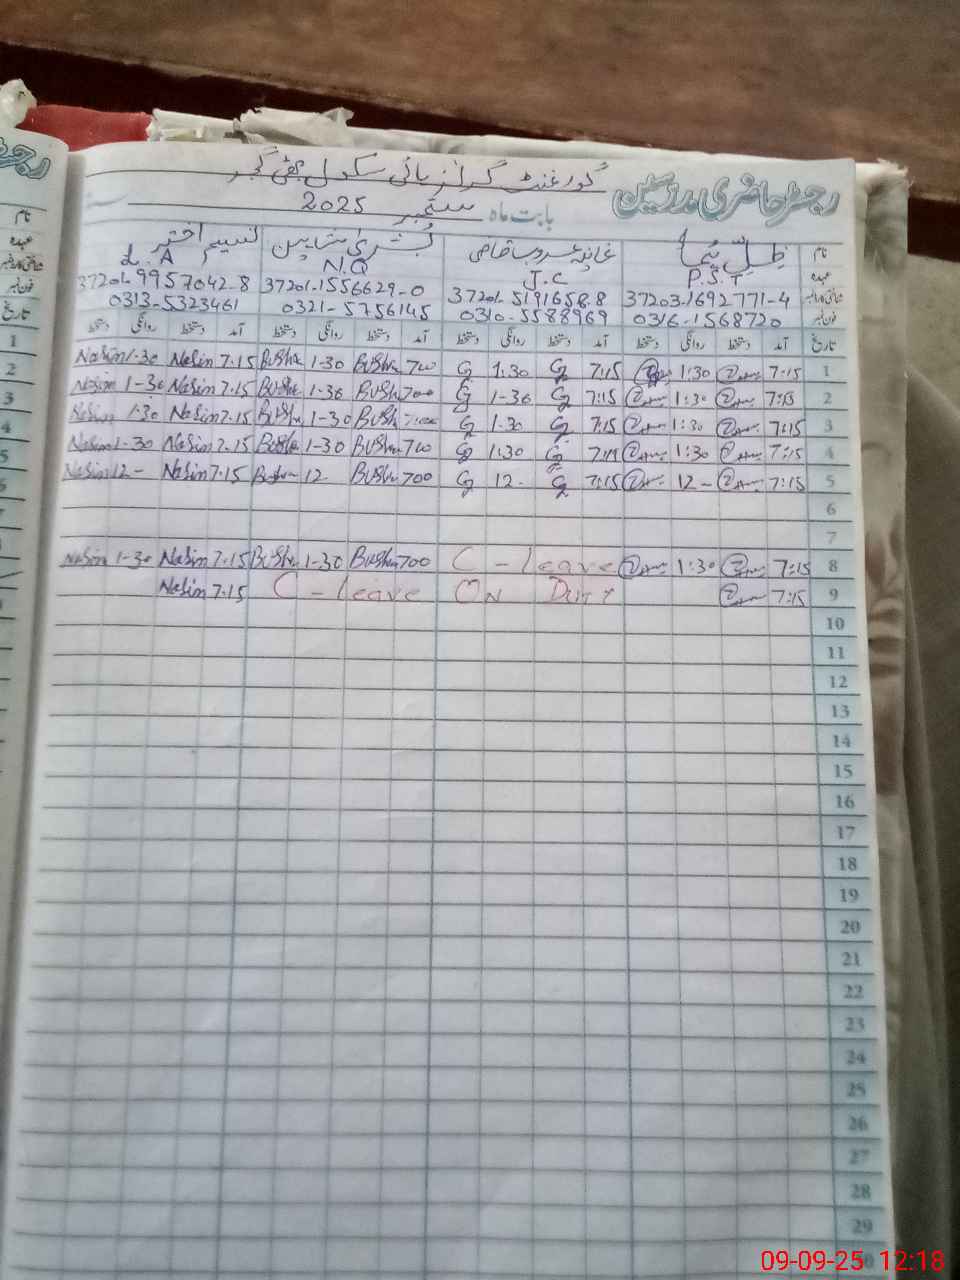 رجسٹر حاضری مدرسین گورنمنٹ گرلز ہائی سکول
بابت ماہ ستمبر 2025
نام ظلِ ہُما غانیہ بُشریٰ شاہین نسیم اختر
عہدہ P.S.T J.C N.Q L.A
37203-1692771-4 37201-5191658-8 37201-1556629-0 37201-9957042-8
فون نمبر 0316-1568720 0310-5588969 0321-5756145 0313-5323461
تاریخ آمد دستخط روانگی دستخط آمد دستخط روانگی دستخط آمد دستخط روانگی دستخط آمد دستخط روانگی دستخط
1 7:15 1:30 7:15 G 1:30 G 700 Bushra 1-30 Bushra 7.15 Nasim 1-30 Nasim
2 7:15 1:30 7:15 G 1-30 G 700 Bushra 1-30 Bushra 7.15 Nasim 1-30 Nasim
3 7:15 1:30 7:15 G 1-30 G 700 Bushra 1-30 Bushra 7.15 Nasim 1-30 Nasim
4 7:15 1:30 7:15 G 1:30 G 700 Bushra 1-30 Bushra 7.15 Nasim 1-30 Nasim
5 7:15 12- 7:15 G 12- G 700 Bushra 12- Bushra 7.15 Nasim 12- Nasim
6
7
8 7:15 1:30 C - leave 700 Bushra 1-30 Bushra 7.15 Nasim 1-30 Nasim
9 7:15 ON DUTY C - leave 7.15 Nasim
10
11
12
13
14
15
16
17
18
19
20
21
22
23
24
25
26
27
28
29
09-09-25 12:18